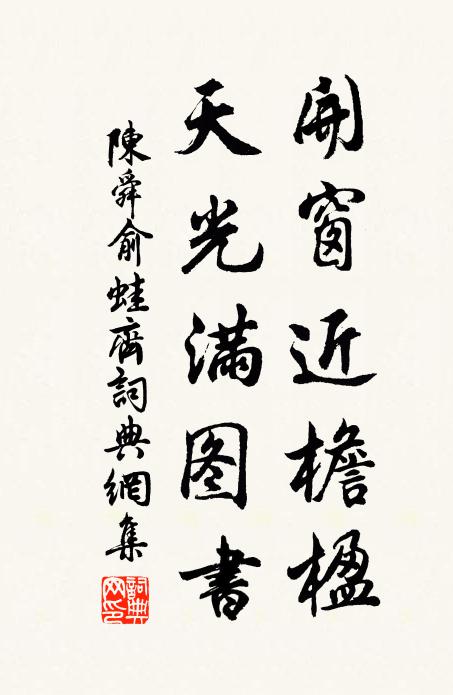 開窗近檐楹
天光滿图書
陳舜俞蛙齋詞典網集
詞典网印